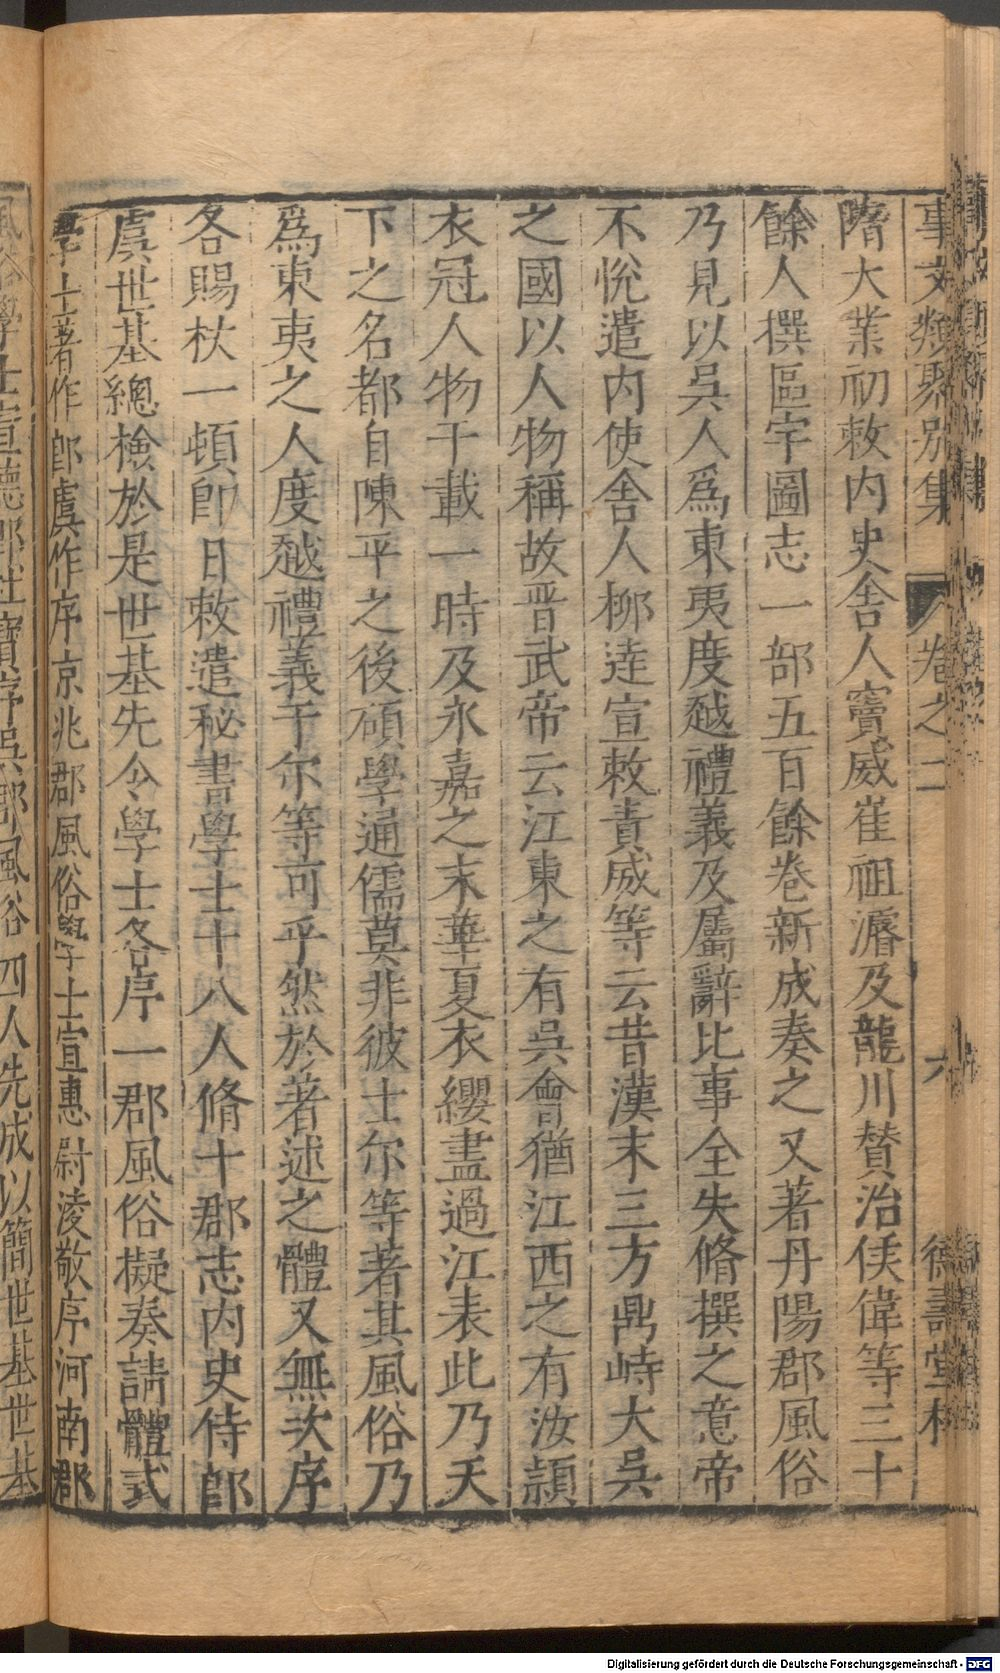 事文類聚別集 卷之二 六 德壽堂梓
隋大業初敕内史舍人竇威崔祖濬及龍川賛治侯偉等三十
餘人撰區宇圖志一部五百餘卷新成奏之又著丹陽郡風俗
乃見以吳人爲東夷度越禮義及屬辭比事全失脩撰之意帝
不悅遣内使舍人柳逵宣敕責威等云昔漢末三方鼎峙大吳
之國以人物稱故晋武帝云江東之有吳會猶江西之有汝頴
衣冠人物千載一時及永嘉之末華夏衣纓盡過江表此乃天
下之名都自陳平之後碩學通儒莫非彼士尔等著其風俗乃
爲東夷之人度越禮義于尔等可乎然於著述之體又無次序
各賜杖一頓卽日敕遣秘書學士十八人脩十郡志内史侍郎
虞世基總檢於是世基先令學士各序一郡風俗擬奏請體式
學士著作郎虞作序京兆郡風俗學士宣惠尉淩敬序河南郡
風俗學士宣德郎杜寶序吳郡風俗四人先成以簡世基世基
Digitalisierung gefördert durch die Deutsche Forschungsgemeinschaft - DFG